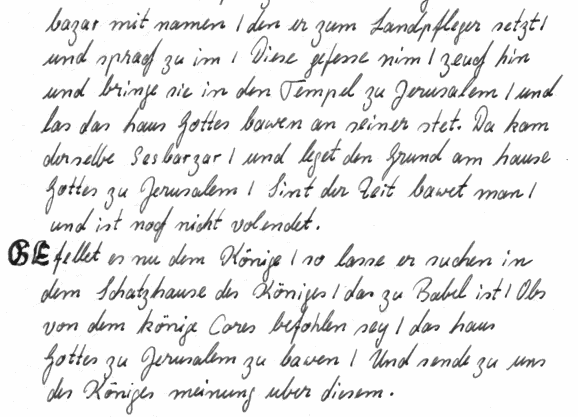 bazar mit namen / den er zum Landpfleger setzt /
und sprach zu im / Diese gefesse nim / zeuch hin
und bringe sie in den Tempel zu Jerusalem / und
las das haus Gottes bawen an seiner stet. Da kam
derselbe Sesbarzar / und leget den Grund am hause
Gottes zu Jerusalem / Sint der Zeit bawet man /
und ist noch nicht volendet.
GEfellet es nu dem Könige / so lasse er suchen in
dem Schatzhause des Königes / das zu Babel ist / Obs
von dem könige Cores befohlen sey / das haus
Gottes zu Jerusalem zu bawen / Und sende zu uns
des Königes meinung uber diesem.